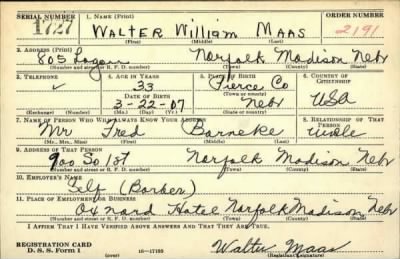 SERIAL NUMBER 1. NAME (Print) ORDER NUMBER
1727 WALTER William MAAS 2191
(First) (Middle) (Last)
2. ADDRESS (Print)
805 Logan Norfolk Madison Nebr
(Number and street or R. F. D. number) (Town) (County) (State)
3. TELEPHONE 4. AGE IN YEARS 5. PLACE OF BIRTH 6. COUNTRY OF CITIZENSHIP
✓ 33 Pierce Co
DATE OF BIRTH (Town or county)
3-22-07 Nebr USA
(Exchange) (Number) (Mo.) (Day) (Yr.) (State or country)
7. NAME OF PERSON WHO WILL ALWAYS KNOW YOUR ADDRESS 8. RELATIONSHIP OF THAT PERSON
Mr Fred Barneke Uncle
(Mr., Mrs., Miss) (First) (Middle) (Last)
9. ADDRESS OF THAT PERSON
900 So 1st Norfolk Madison Nebr
(Number and street or R. F. D. number) (Town) (County) (State)
10. EMPLOYER'S NAME
Self (Barber)
11. PLACE OF EMPLOYMENT OR BUSINESS
Oxnard Hotel Norfolk Madison Nebr
(Number and street or R. F. D. number) (Town) (County) (State)
I AFFIRM THAT I HAVE VERIFIED ABOVE ANSWERS AND THAT THEY ARE TRUE.
REGISTRATION CARD
D. S. S. Form 1 (over) 16—17105
Walter Maas
(Registrant's signature)